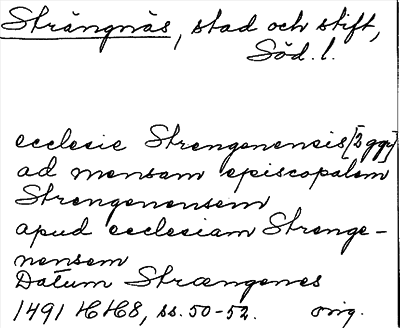 Strängnäs, stad och stift,
Söd. l.
ecclesie Strengenensis [2 ggr]
ad mensam episcopalem
Strengenensem
apud ecclesiam Strenge-
nensem
Datum Strængenes
1491 HH8, ss. 50-52. orig.